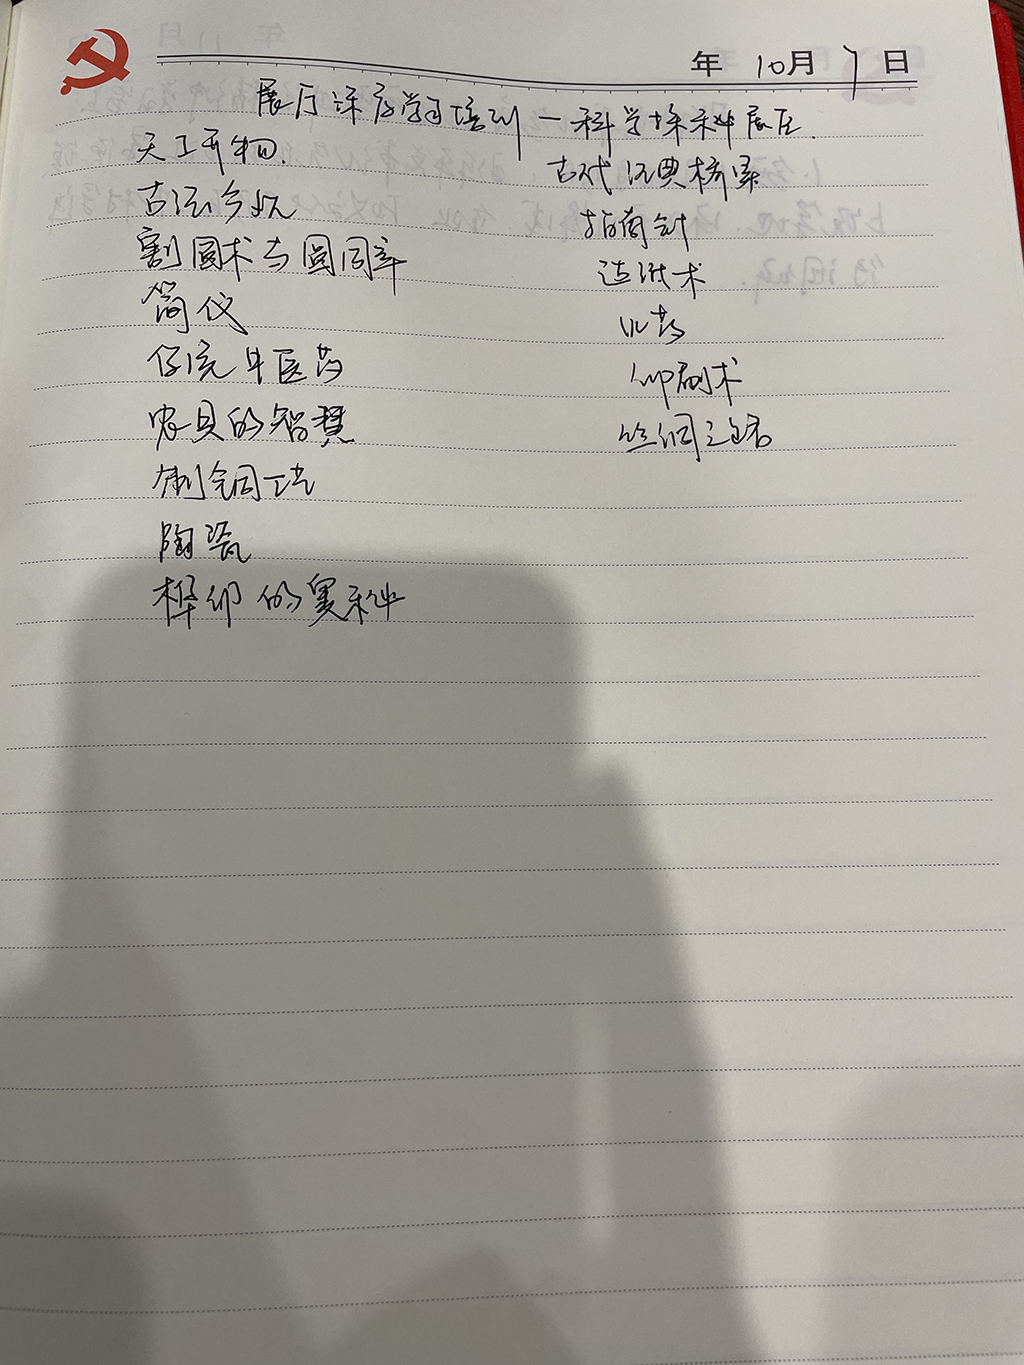 年 10月 7日
展厅深度学习培训一科学探秘展区.
天工开物.
古法今观
割圆术与圆周率
简仪
传统中医药
农具的智慧
制铜工艺
陶瓷
榫卯的奥秘
古代经典桥梁
指南针
造纸术
火药
印刷术
丝绸之路